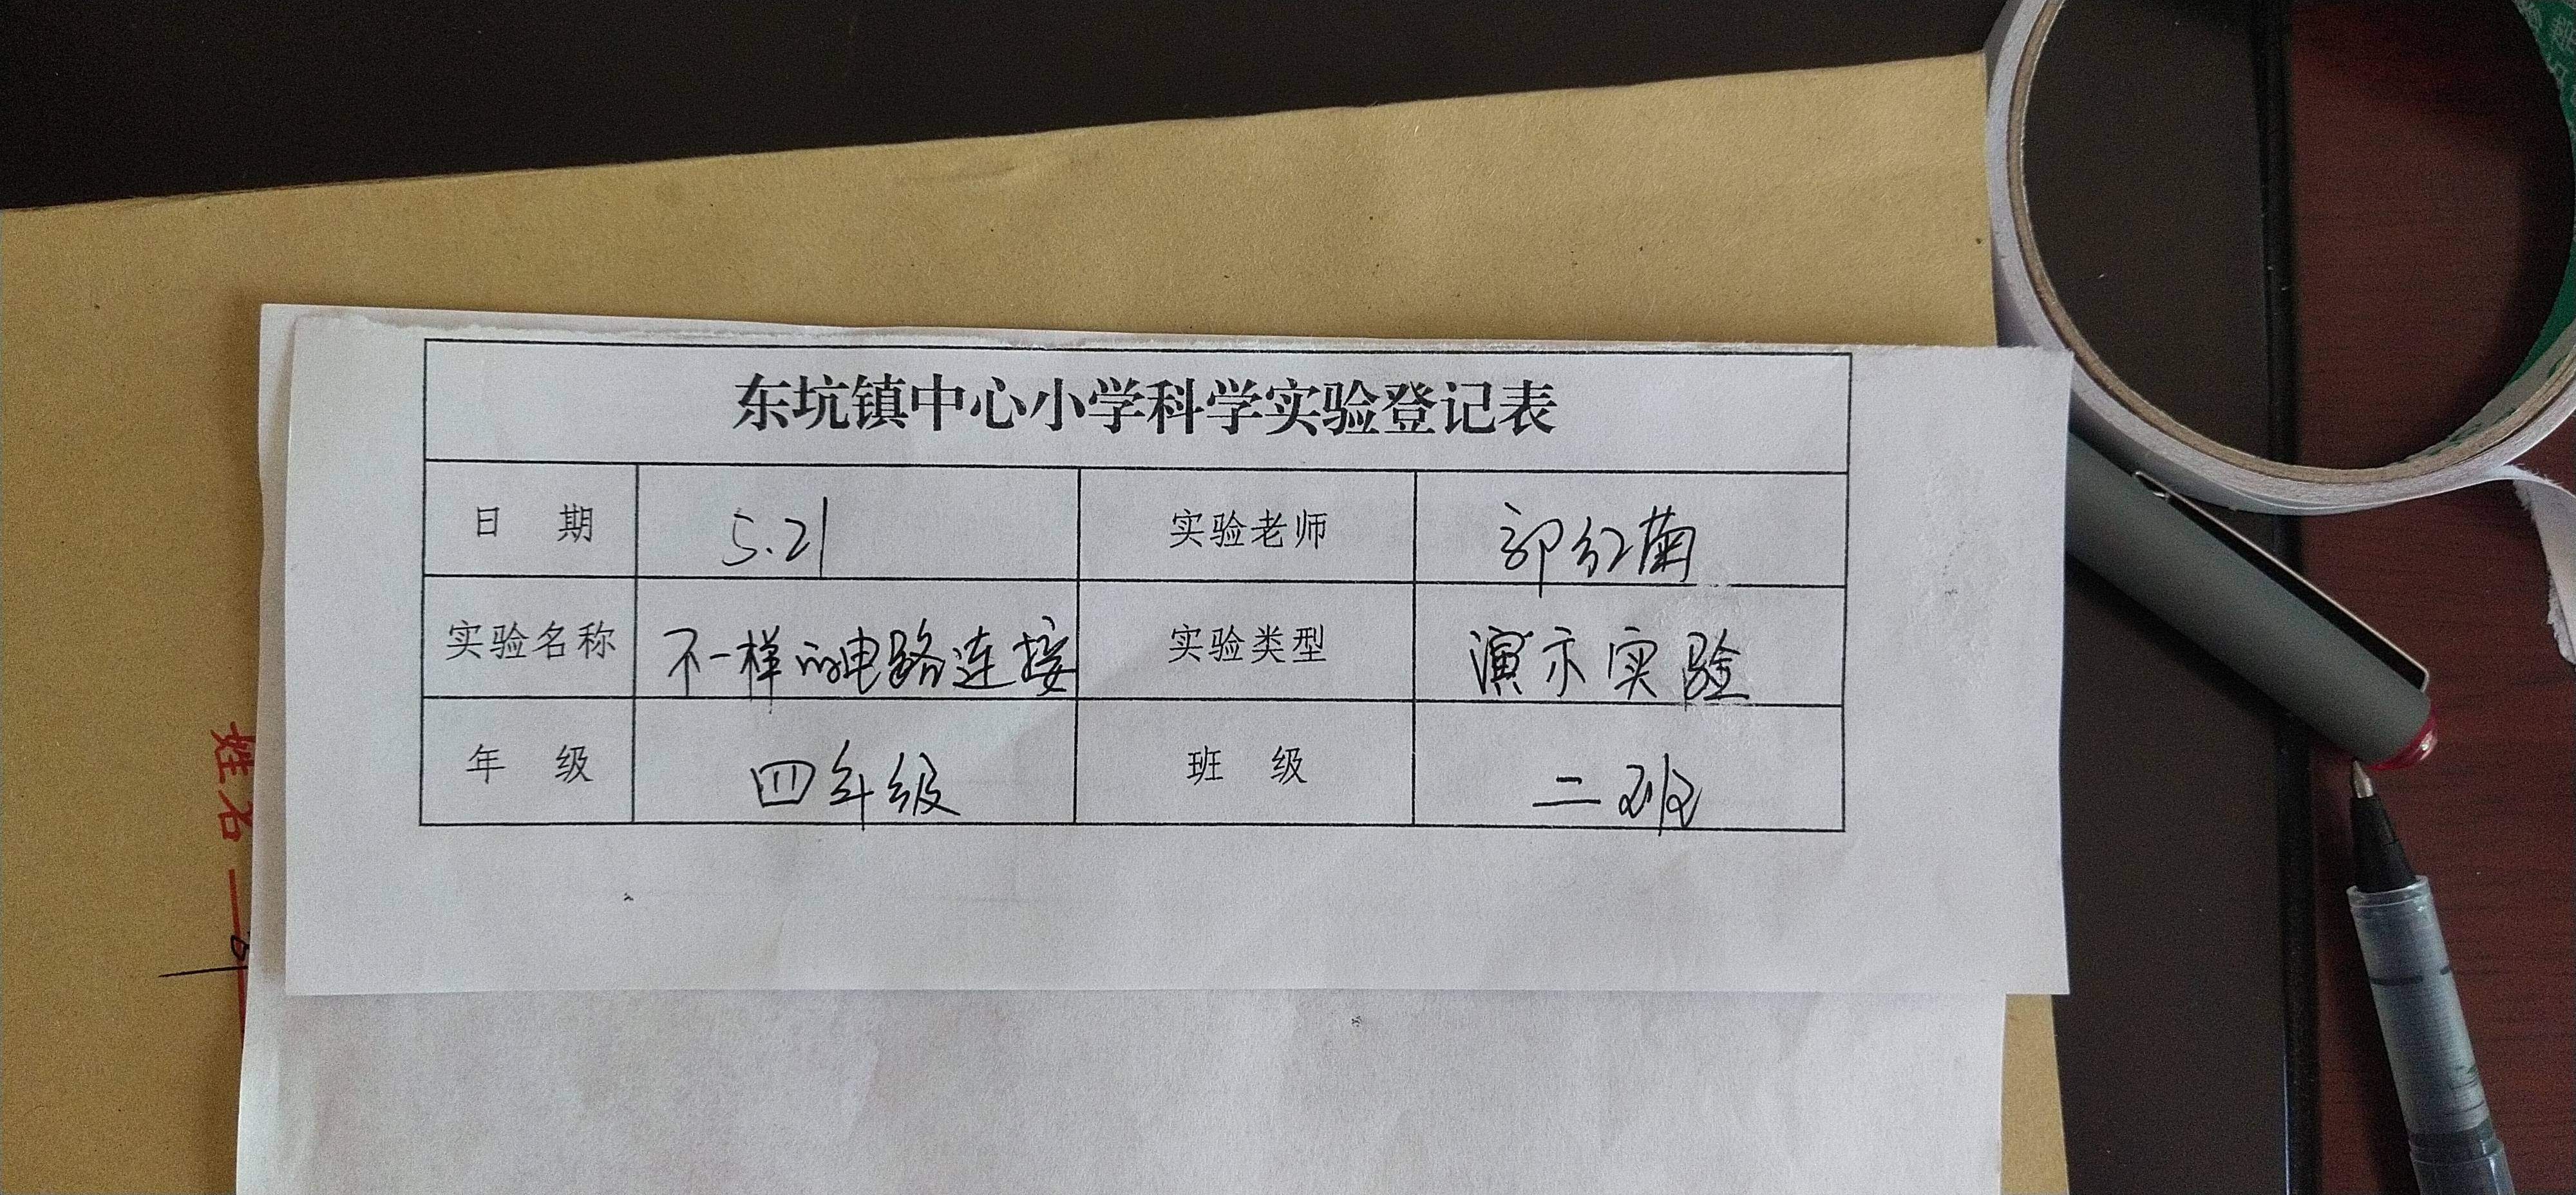 东坑镇中心小学科学实验登记表
日 期 5.21 实验老师 郭红菊
实验名称 不一样的电路连接 实验类型 演示实验
年 级 四年级 班 级 二班
姓名